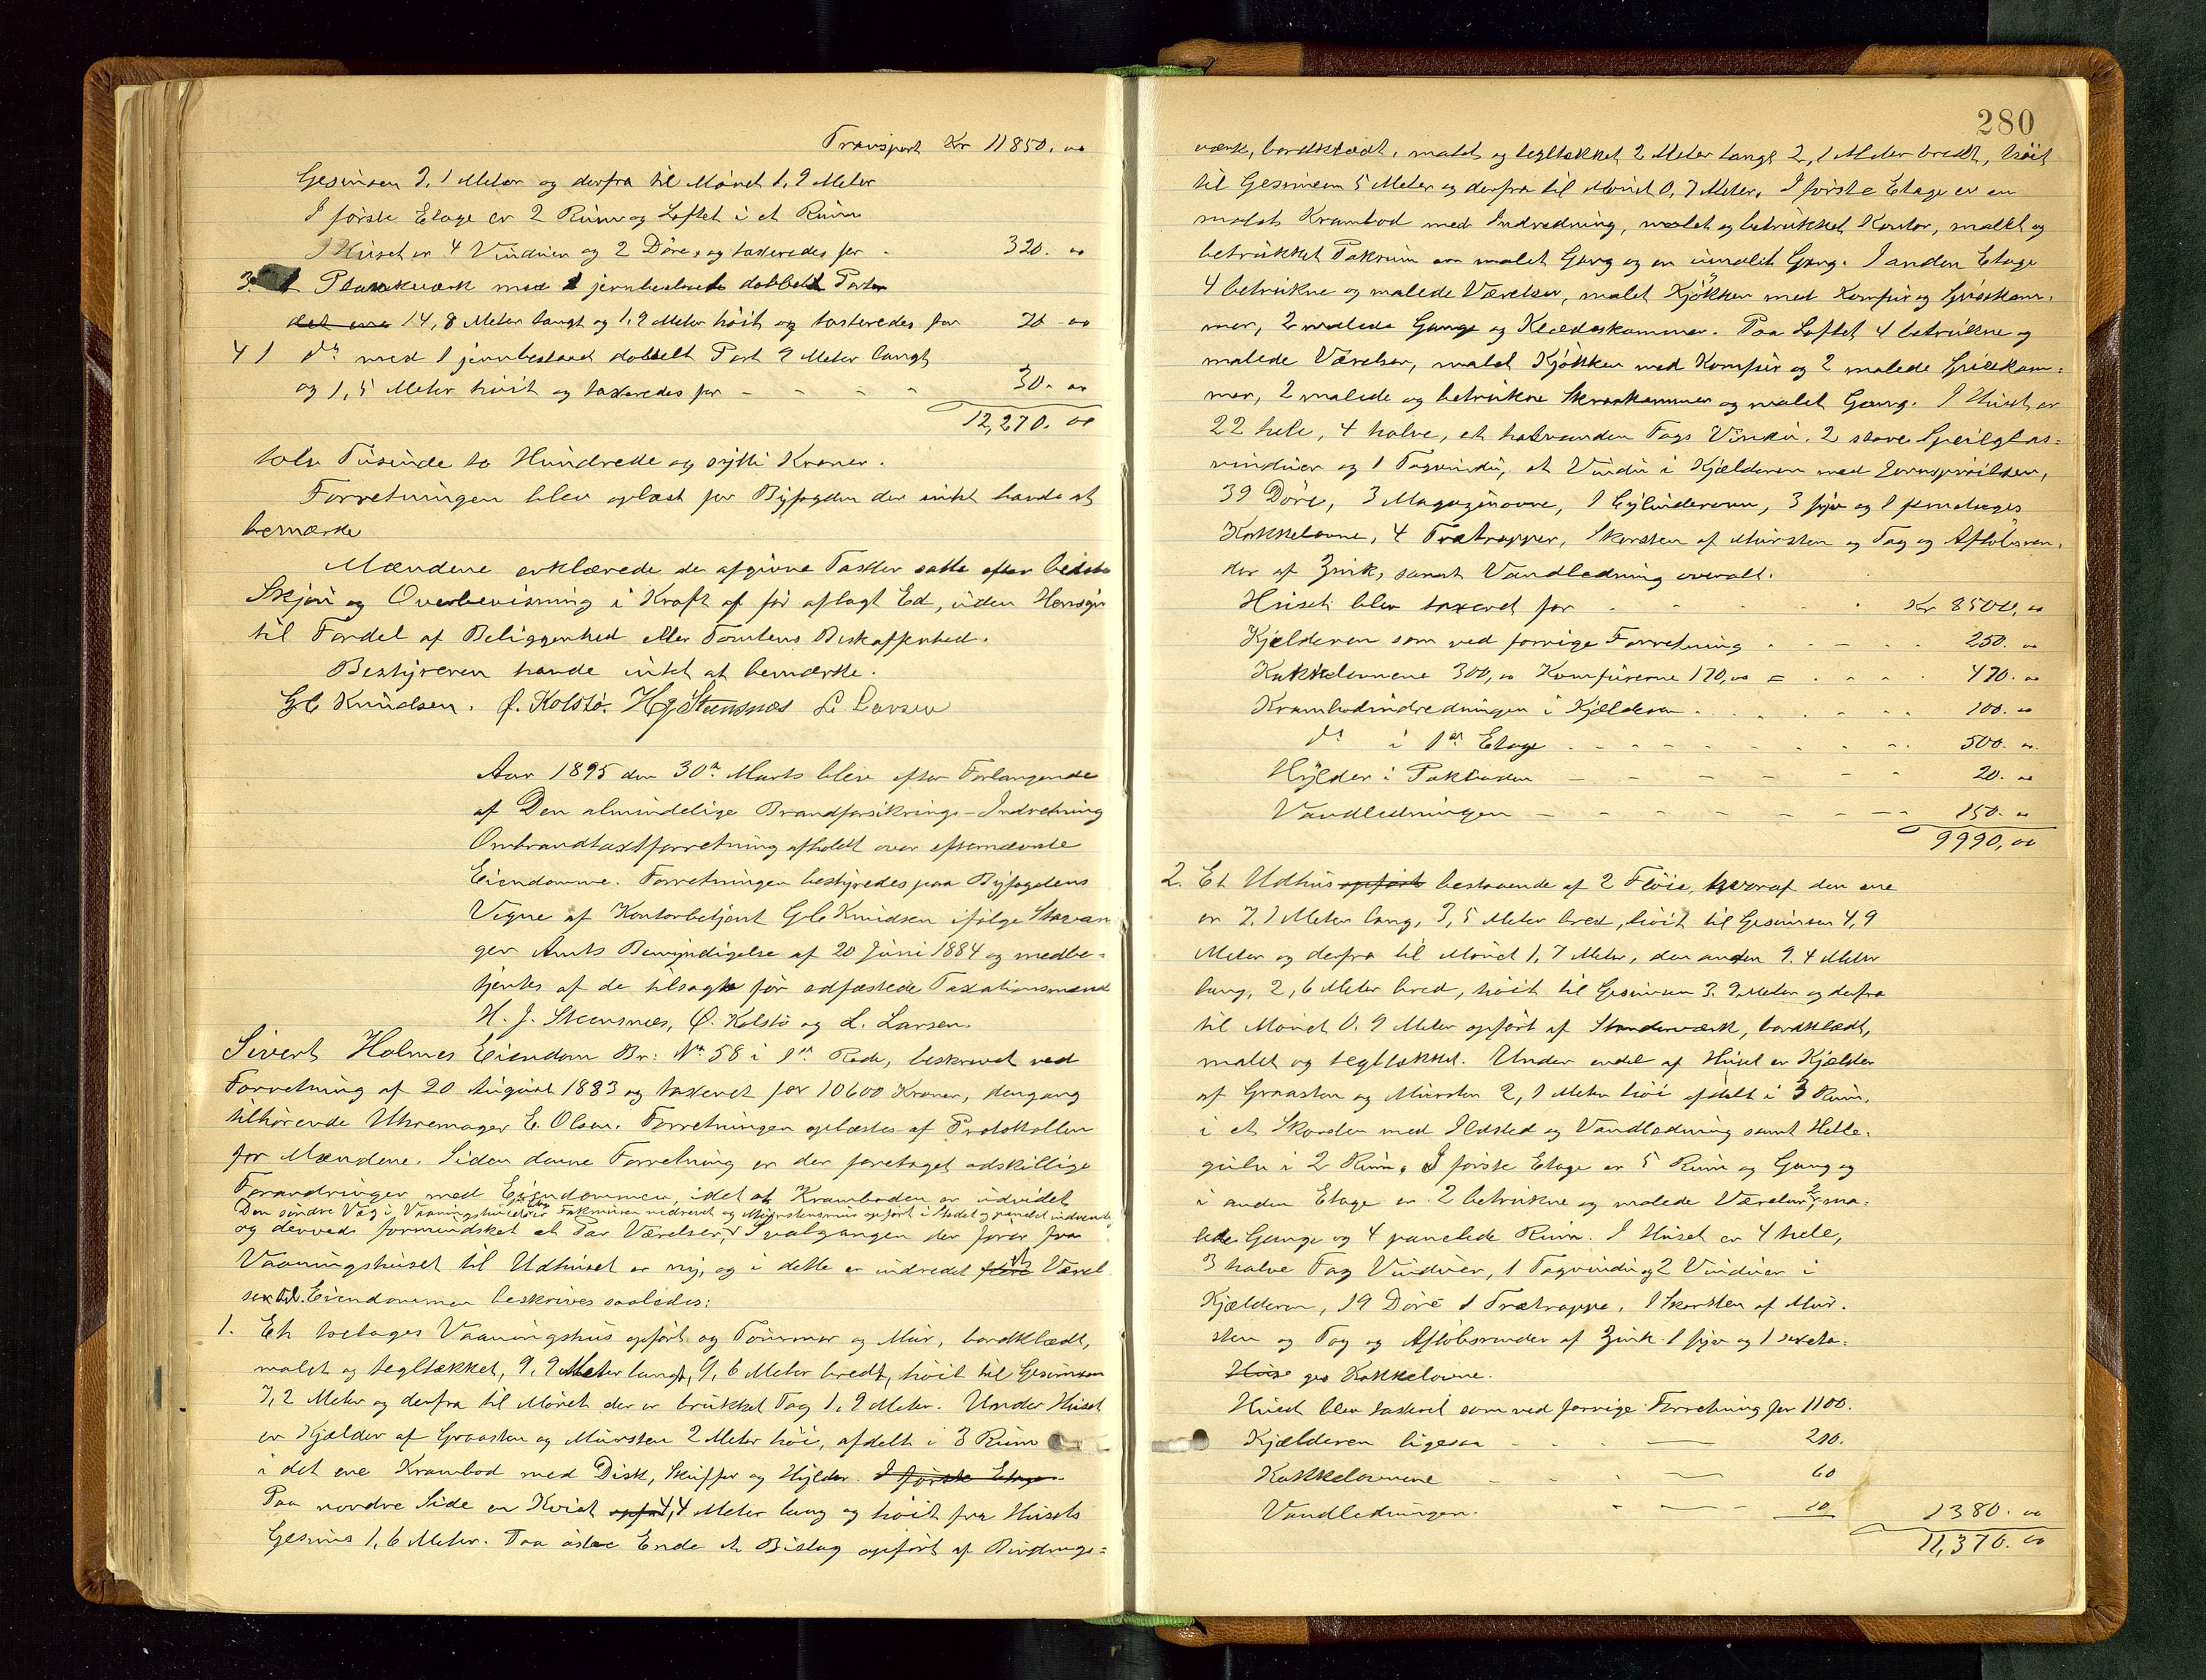 Transport Kr 11850.00
Gesimsen 2,1 Meter og derfra til Mønet 1,9 Meter
I første Etage er 2 Rum og Loftet i et Rum
I Huset er 4 Vinduer og 2 Døre, og taxeredes for - 320.00
3. 1 Plankeværk med 1 jernbeslaaet dobbelt Port
14,8 Meter langt og 1,9 Meter høit og taxeredes for 70 00
4 1 do med 1 jernbeslaaet dobbelt Port 9 Meter langt
og 1,5 Meter høit og taxeredes for - - - - 30.00
12,270.00
tolv Tusinde to Hundrede og sytti Kroner.
Forretningen blev oplæst for Byfogden der intet havde at
bemærke
Mændene erklærede de afgivne Taxter satte efter bedste
Skjøn og Overbevisning i Kraft af før aflagt Ed, uden Hensyn
til Fordel af Beliggenhed eller Tomtens Beskaffenhed.
Bestyreren havde intet at bemærke.
GC Knudsen. Ø. Kolstø. HJ Steensnæs L. Larsen
Aar 1895 den 30te Marts blev efter Forlangende
af Den almindelige Brandforsikrings-Indretning
Ombrandtaxtforretning afholdt over efternævnte
Eiendomme. Forretningen bestyredes paa Byfogdens
Vegne af Kontorbetjent GC Knudsen ifølge Stavan
ger Amts Bemyndigelse af 20 Juni 1884 og medbe=
tjentes af de tilsagte før edfæstede Taxationsmænd
H. J. Steensnæs, Ø. Kolstø og L. Larsen.
Sivert Holmes Eiendom Br: No 58 i 1ste Rode, beskrevet ved
Forretning af 20 August 1883 og taxeret for 10600 Kroner, dengang
tilhørende Uhrmager E. Olsen. Forretningen oplæstes af Protokollen
for Mændene. Siden denne Forretning er der foretaget adskillige
Forandringer med Eiendommen, idet at Kramboden er udvidet
Den søndre Væg i Vaaningshuset nedrevet og Murstensmur opført i Stedet og panelet indvendig
og derved formindsket et Par Værelser, Svalgangen der fører fra
Vaaningshuset til Udhuset er ny, og i dette er indredet et Værel
se til. Eiendommen beskrives saaledes:
1. Et toetages Vaaningshus opført og Tømmer og Mur, bordklædt,
malet og tegltækket, 9,9 Meter langt, 9,6 Meter bredt, høit til Gesimsen
7,2 Meter og derfra til Mønet der er brukket Tag 1,9 Meter. Under Huset
er Kjælder af Graasten og Mursten 2 Meter høi, afdelt i 3 Rum
i det ene Krambod med Disk, Skuffer og Hylder. I første Etage
Paa nordre Side en Kvist 4,4 Meter lang og høit fra Husets
Gesims 1,6 Meter. Paa østre Ende et Bislag opført af Bindings=
280
værk, bordklædt, malet og tegltækket 2 Meter langt 2,1 Meter bredt, høit
til Gesimsen 5 Meter og derfra til Mønet 0,7 Meter. I første Etage er en
malet Krambod med Indredning, malet og betrukket Kontor, malet og
betrukket Pakrum en malet Gang og en umalet Gang. I anden Etage
4 betrukne og malede Værelser, malet Kjøkken med Komfur og Spisekam=
mer, 2 malede Gange og Klædeskammer. Paa Loftet 4 betrukne og
malede Værelser, malet Kjøkken med Komfur og 2 malede Spisekam=
mer, 2 malede og betrukne Skraakammer og malet Gang. I Huset er
22 hele, 4 halve, et halvanden Fags Vindu, 2 store Speilglas=
vinduer og 1 Tagvindu, et Vindu i Kjælderen med Jernsprinkler,
39 Døre, 3 Magazinovne, 1 Cylinderovn, 3 fyr og 1 femetages
Kakkelovne, 4 Trætrapper, Skorsten af Mursten og Tag og Afløbsren=
der af Zink, samt Vandledning overalt.
Huset blev taxeret for - - - - Kr 8500,00
Kjælderen som ved forrige Forretning - - - - 250.00
Kakkelovnene 300,00 Komfurerne 170,00 = - - - - 470.00
Krambodindredningen i Kjælderen - - - - 100.00
do i 1ste Etage - - - - 500.00
Hylder i Pakboden - - - - 20.00
Vandledningen - - - - 150.00
9990,00
2. Et Udhus opført bestaaende af 2 Fløie, hvoraf den ene
er 7,1 Meter lang, 3,5 Meter bred, høit til Gesimsen 4,9
Meter og derfra til Mønet 1,7 Meter, den anden 9.4 Meter
lang, 2,6 Meter bred, høit til Gesimsen 3.9 Meter og derfra
til Mønet 0.9 Meter opført af Standerværk, bordklædt,
malet og tegltækket. Under endel af Huset er Kjælder
af Graasten og Mursten 2,1 Meter høi afdelt i 3 Rum,
i et Skorsten med Ildsted og Vandledning samt Helle=
gulv i 2 Rum. I første Etage er 5 Rum og Gang og
i anden Etage er 2 betrukne og malede Værelser, 2 ma=
lede Gange og 4 panelede Rum. I Huset er 4 hele,
3 halve Fag Vinduer, 1 Tagvindu og 2 Vinduer i
Kjælderen, 19 Døre 1 Trætrappe, 1 Skorsten af Mur=
sten og Tag og Afløbsrender af Zink. 1 fyr og 1 sexeta=
Huse ges Kakkelovne.
Huset blev taxeret som ved forrige Forretning for 1100.
Kjælderen ligesaa - - - - 210.
Kakkelovnene - - - - 60
Vandledningen. - - - - 10 1380.00
11,370.00